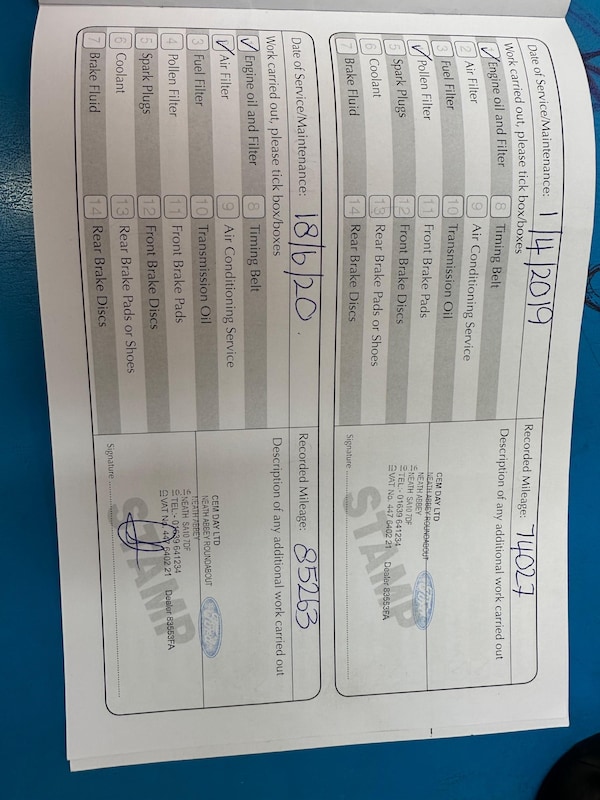 Date of Service/Maintenance: 1/4/2019
Work carried out, please tick box/boxes
1 Engine oil and Filter
2 Air Filter
3 Fuel Filter
4 Pollen Filter
5 Spark Plugs
6 Coolant
7 Brake Fluid
8 Timing Belt
9 Air Conditioning Service
10 Transmission Oil
11 Front Brake Pads
12 Front Brake Discs
13 Rear Brake Pads or Shoes
14 Rear Brake Discs
Recorded Mileage: 74027
Description of any additional work carried out
CEM DAY LTD
NEATH ABBEY ROUNDABOUT
NEATH ABBEY
NEATH SA10 7DF
TEL - 01639 641234
VAT No. 447 6402 21 Dealer 83553FA
STAMP
Signature
Date of Service/Maintenance: 18/6/20.
Work carried out, please tick box/boxes
Engine oil and Filter
Air Filter
3 Fuel Filter
4 Pollen Filter
5 Spark Plugs
6 Coolant
7 Brake Fluid
8 Timing Belt
9 Air Conditioning Service
10 Transmission Oil
11 Front Brake Pads
12 Front Brake Discs
13 Rear Brake Pads or Shoes
14 Rear Brake Discs
Recorded Mileage: 85263
Description of any additional work carried out
CEM DAY LTD
NEATH ABBEY ROUNDABOUT
NEATH ABBEY
NEATH SA10 7DF
TEL - 01639 641234
VAT No. 447 6402 21 Dealer 83553FA
STAMP
Signature